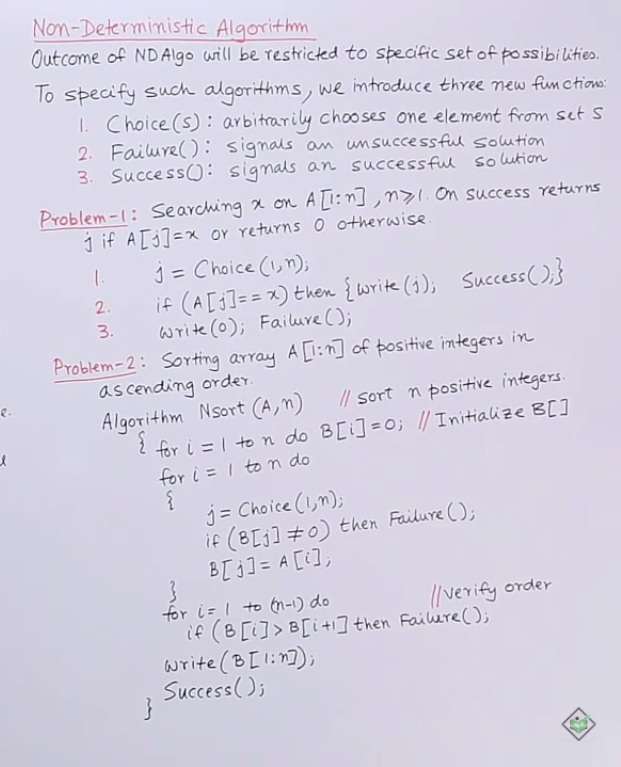 Non-Deterministic Algorithm
Outcome of ND Algo will be restricted to specific set of possibilities.
To specify such algorithms, we introduce three new function:
1. Choice(s): arbitrarily chooses one element from set S
2. Failure(): signals an unsuccessful solution
3. Success(): signals an successful solution
Problem-1: Searching x on A[1:n], n≥1. On success returns
j if A[j]=x or returns 0 otherwise.
1. j = Choice(1,n);
2. if (A[j]==x) then {write(j); Success();}
3. write(0); Failure();
Problem-2: Sorting array A[1:n] of positive integers in
ascending order.
e.
Algorithm Nsort(A,n) // sort n positive integers.
{ for i = 1 to n do B[i]=0; // Initialize B[]
for i = 1 to n do
{
j = Choice(1,n);
if (B[j] ≠ 0) then Failure();
B[j] = A[i];
}
for i = 1 to (n-1) do // verify order
if (B[i] > B[i+1] then Failure();
write(B[1:n]);
Success();
}